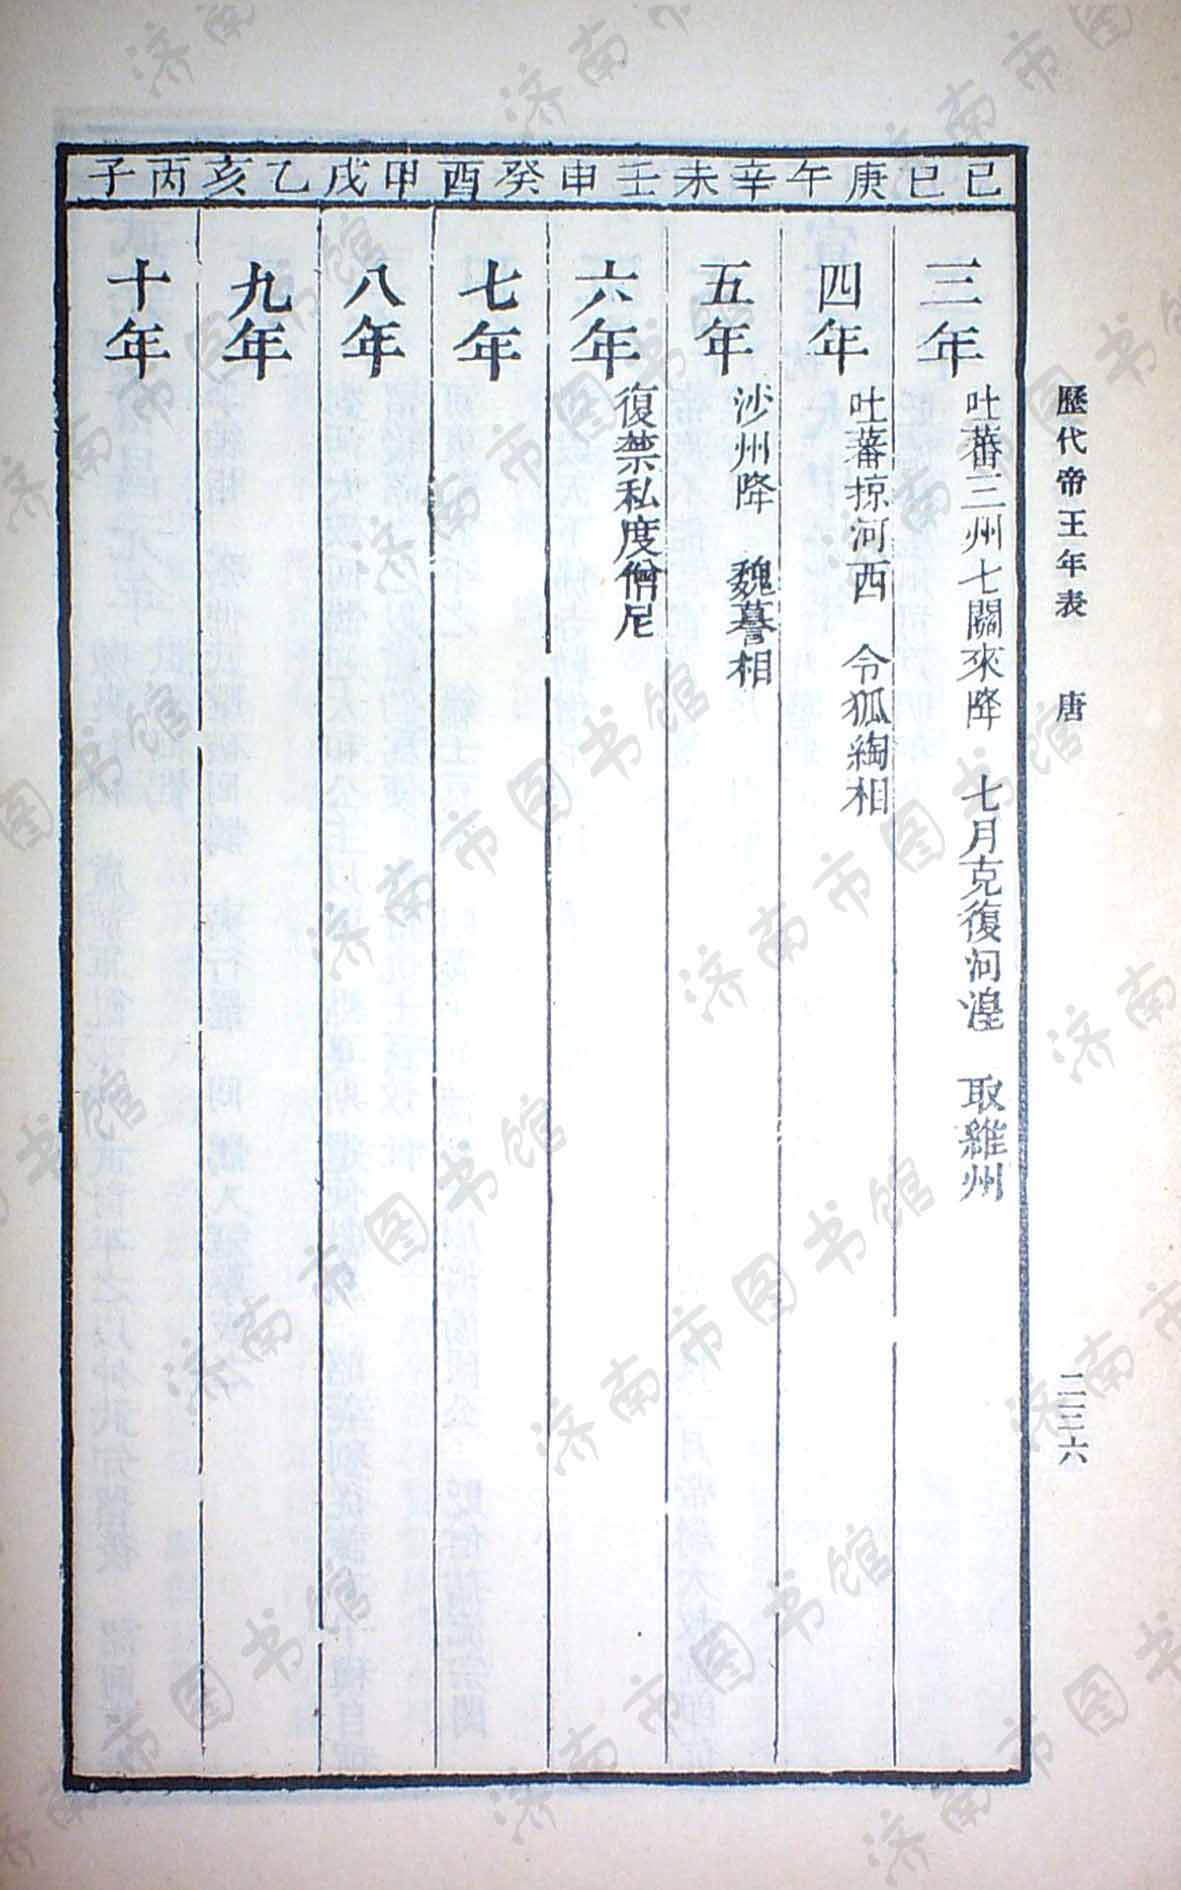 歷代帝王年表 唐 二三六
己巳 庚午 辛未 壬申 癸酉 甲戌 乙亥 丙子
三年 吐蕃三州七關來降 七月克復河湟 取維州
四年 吐蕃掠河西 令狐綯相
五年 沙州降 魏謩相
六年 復禁私度僧尼
七年
八年
九年
十年
济南市图书馆